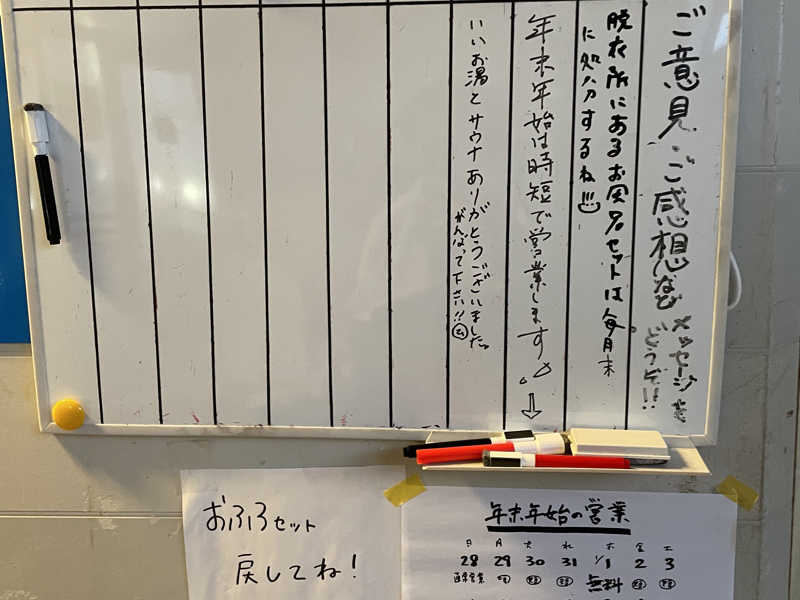 ご意見・ご感想など
メッセージを
どうぞ!!
脱衣所にあるお風呂セットは毎月末
に処分するね!!!
年末年始は時短で営業します
いいお湯とサウナありがとうございました。
がんばって下さい!!
おふろセット
戻してね!
年末年始の営業
日 月 火 水 木 金 土
28 29 30 31 1/1 2 3
通常営業 無料